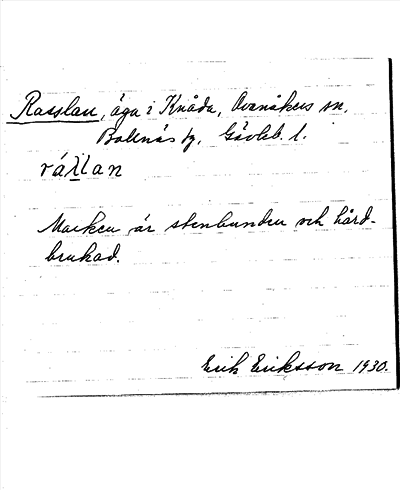 Rasslan, äga i Knåda, Ovanåkers sn.
Bollnäs tg, Gävleb. l.
Marken är stenbunden och hård-
brukad.
Erik Eriksson 1930.